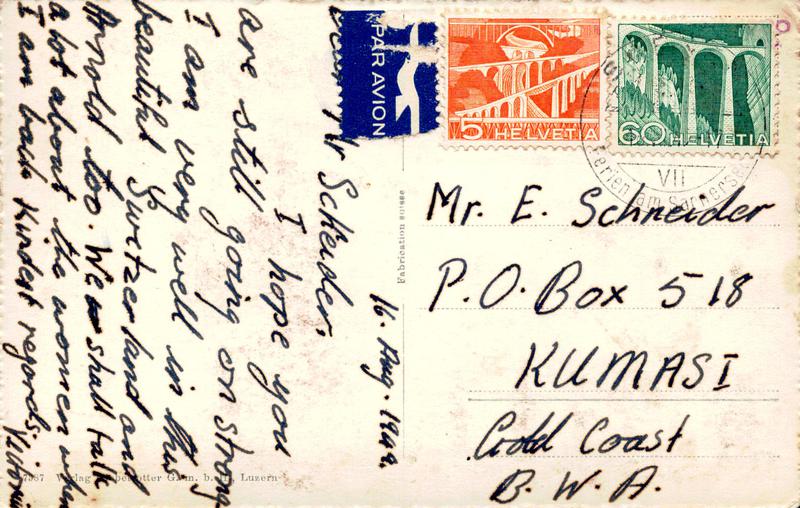 PAR AVION
5 HELVETIA
60 HELVETIA
VII
am Sarnersee
Fabrication suisse
Mr. E. Schneider
P.O. Box 518
KUMASI
Gold Coast
B. W. A.
16. Aug. 1949.
Dear Mr Scheider,
I hope you
are still going on strong
I am very well in this
beautiful Switzerland and
Arnold too. We shall talk
a lot about the women when
I am back Kindest regards,
Verlag G. m. b. H., Luzern